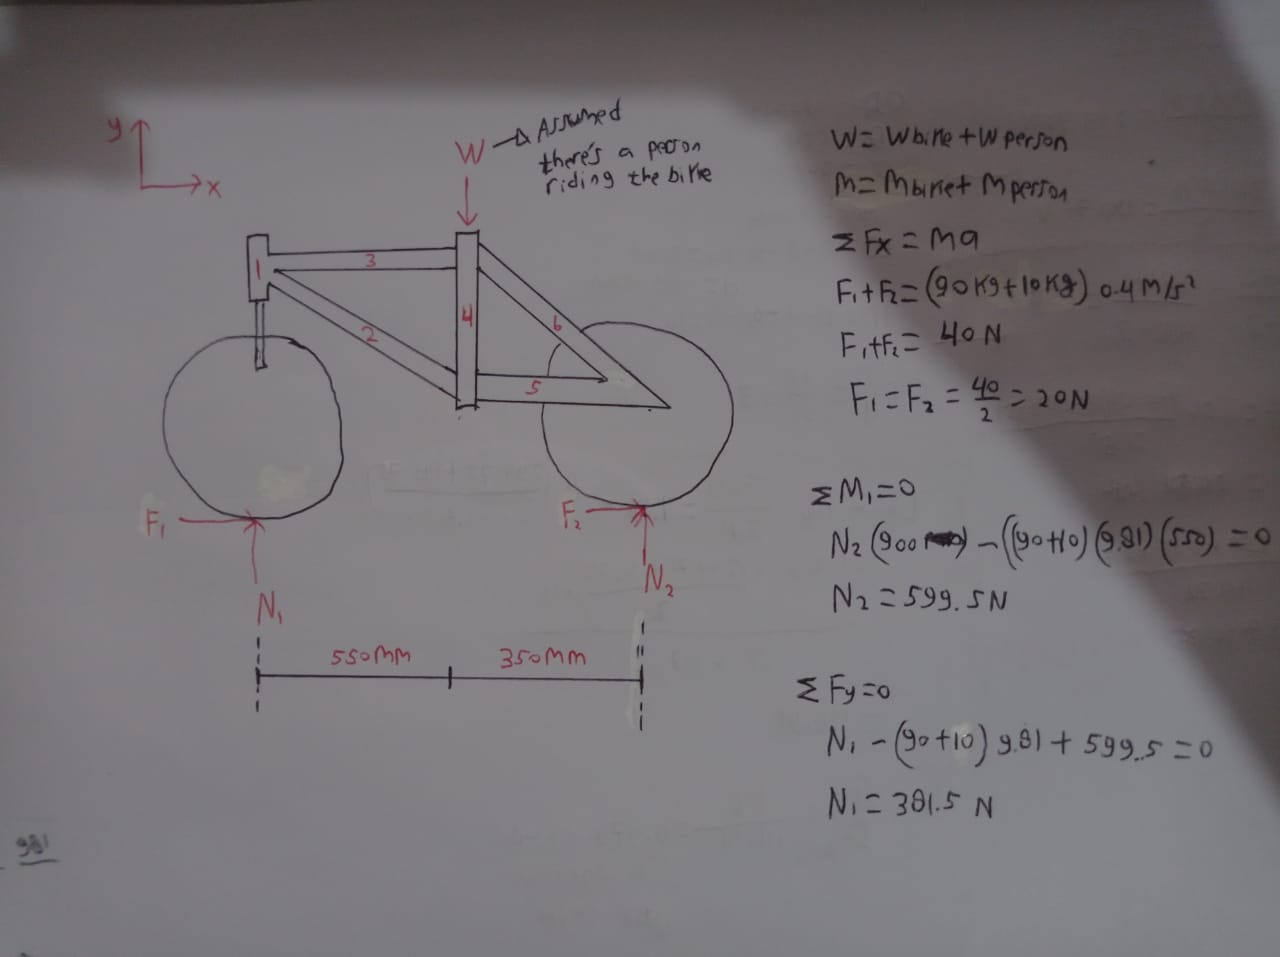 y
x
W → Assumed
there's a person
riding the bike
1
3
2
4
6
5
F₁
F₂
N₁
N₂
550mm
350mm
W = Wbike + W person
m = Mbike + M person
ΣFx = ma
F₁+F₂ = (90kg+10kg) 0.4 m/s²
F₁+F₂ = 40 N
F₁ = F₂ = 40/2 = 20N
ΣM₁ = 0
N₂ (900) - ((90+10)(9.81)(550) = 0
N₂ = 599.5N
ΣFy = 0
N₁ - (90+10) 9.81 + 599.5 = 0
N₁ = 381.5 N
981